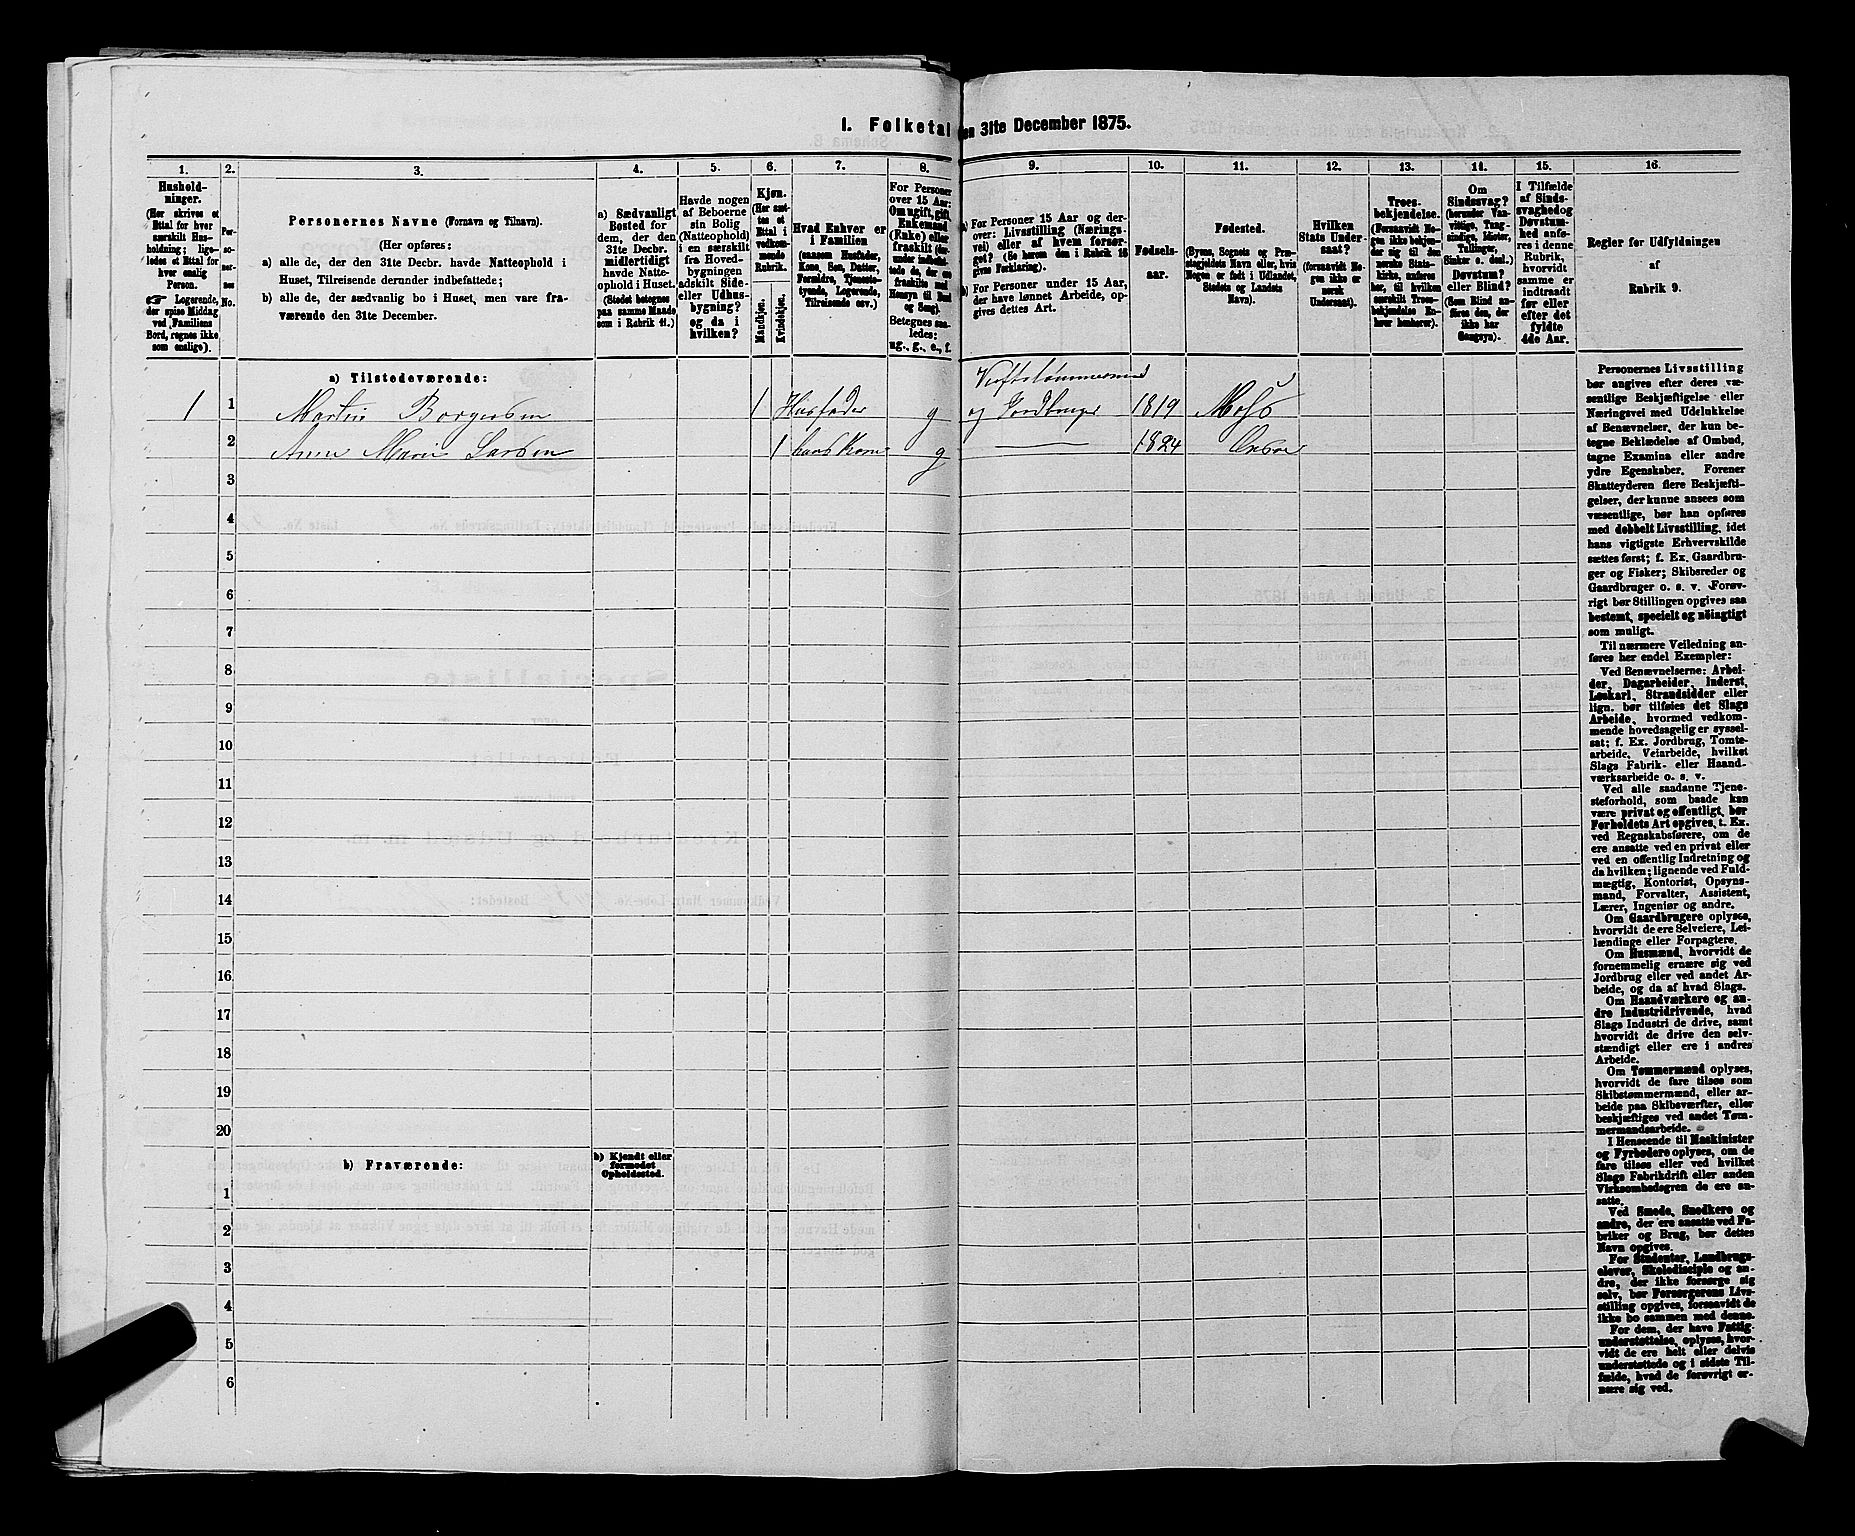 I. Folketal den 31te December 1875.
1.
Hushold-
ninger.
(Her skrives et
Ettal for hver
særskilt Hus-
holdning; lige-
ledes et Ettal for
hver enslig
Person.
☞ Logerende,
der spise Middag
ved Familiens
Bord, regnes ikke
som enslige).
2.
Per-
so-
ner-
nes
No.
3.
Personernes Navne (Fornavn og Tilnavn).
(Her opføres:
a) alle de, der den 31te Decbr. havde Natteophold i
Huset, Tilreisende derunder indbefattede;
b) alle de, der sædvanlig bo i Huset, men vare fra-
værende den 31te December.
4.
a) Sædvanligt
Bosted for
dem, der den
31te Decbr.
midlertidigt
havde Natte-
ophold i Huset.
(Stedet betegnes
paa samme Maade
som i Rubrik 11.)
5.
Havde nogen
af Beboerne
sin Bolig
(Natteophold)
i en særskilt
fra Hoved-
bygningen
adskilt Side-
eller Udhus-
bygning?
og da i
hvilken?
6.
Kjøn.
(Her sæt-
tes et
Ettal i
vedkom-
mende
Rubrik.
Mandkjøn.
Kvindekjøn.
7.
Hvad Enhver er
i Familien
(saasom Husfader,
Kone, Søn, Datter,
Forældre, Tjeneste-
tyende, Logerende,
Tilreisende osv.)
8.
For Personer
over 15 Aar:
Om ugift, gift,
Enkemand
(Enke) eller
fraskilt (der-
under indbefat-
tede de, der ere
fraskilte med
Hensyn til Bord
og Seng).
Betegnes saa-
ledes:
ug., g., e., f.
9.
a) For Personer 15 Aar og der-
over: Livsstilling (Nærings-
vei) eller af hvem forsør-
get? (Se herom den i Rubrik 16
givne Forklaring).
b) For Personer under 15 Aar,
der have lønnet Arbeide, op-
gives dettes Art.
10.
Fødsels-
aar.
11.
Fødested.
(Byens, Sognets og Præ-
stegjeldets Navn eller, hvis
Nogen er født i Udlandet,
Stedets og Landets
Navn).
12.
Hvilken
Stats Under-
saat?
(forsaavidt No-
gen ikke er
norsk
Undersaat).
13.
Troes-
bekjendelse.
(Forsaavidt No-
gen ikke bekjen-
der sig til den
norske Stats-
kirke, anføres
her, til hvilken
særskilt Troes-
bekjendelse En-
hver henhører).
14.
Om
Sindssvag?
(herunder Van-
vittige, Tung-
sindige, Idioter,
Tullinger,
Sinker o. desl.)
Døvstum?
eller Blind?
(Som Blind an-
føres den, der
ikke har
Gangsyn).
15.
I Tilfælde
af Sinds-
svaghed og
Døvstum-
hed anfø-
res i denne
Rubrik,
hvorvidt
samme er
indtraadt
før eller
efter det
fyldte
4de Aar.
16.
Regler for Udfyldningen
af
Rubrik 9.
a) Tilstedeværende:
1 1 Martin Borgersen 1 Husfader g Verftstømmermand og Jordbruger 1819 Moss
2 Anne Marie Larsen 1 hans Kone g 1824 Onsøe
3
4
5
6
7
8
9
10
11
12
13
14
15
16
17
18
19
20
b) Fraværende:
b) Kjendt eller
formodet
Opholdssted.
1
2
3
4
5
6
Personernes Livsstilling
bør angives efter deres væ-
sentlige Beskjæftigelse eller
Næringsvei med Udelukkelse
af Benævnelser, der kun be-
tegne Beklædelse af Ombud,
tagne Examina eller andre
ydre Egenskaber. Forener
Skatteyderen flere Beskjæfti-
gelser, der kunne ansees som
væsentlige, bør han opføres
med dobbelt Livsstilling, idet
hans vigtigste Erhvervskilde
sættes først; f. Ex. Gaardbru-
ger og Fisker; Skibsreder og
Gaardbruger o. s. v. Forøv-
rigt bør Stillingen opgives saa
bestemt, specielt og nøiagtigt
som muligt.
Til nærmere Veiledning an-
føres her endel Exempler:
Ved Benævnelserne: Arbei-
der, Dagarbeider, Inderst,
Løskarl, Strandsidder eller
lign. bør tilføies det Slags
Arbeide, hvormed vedkom-
mende hovedsagelig er syssel-
sat; f. Ex. Jordbrug, Tomte-
arbeide, Veiarbeide, hvilket
Slags Fabrik- eller Haand-
værksarbeide o. s. v.
Ved alle saadanne Tjene-
steforhold, som baade kan
være privat og offentligt, bør
Forholdets Art opgives, t. Ex.
ved Regnskabsførere, om de
ere ansatte ved en privat eller
ved en offentlig Indretning og
da hvilken; lignende ved Fuld-
mægtig, Kontorist, Opsyns-
mand, Forvalter, Assistent,
Lærer, Ingeniør og andre.
Om Gaardbrugere oplyses,
hvorvidt de ere Selveiere, Lei-
lændinge eller Forpagtere.
Om Husmænd, hvorvidt de
fornemmelig ernære sig ved
Jordbrug eller ved andet Ar-
beide, og da af hvad Slags.
Om Haandværkere og an-
dre Industridrivende, hvad
Slags Industri de drive, samt
hvorvidt de drive den selv-
stændigt eller ere i andres
Arbeide.
Om Tømmermænd oplyses,
hvorvidt de fare tilsøs som
Skibstømmermænd, eller ar-
beide paa Skibsværfter, eller
beskjæftiges ved andet Tøm-
mermandsarbeide.
I Henseende til Maskinister
og Fyrbødere oplyses, om de
fare tilsøs eller ved hvilket
Slags Fabrikdrift eller anden
Virksomhedsgren de ere an-
satte.
Ved Smede, Snedkere og
andre, der ere ansatte ved Fa-
briker og Brug, bør dettes
Navn opgives.
For Studenter, Landbrugs-
elever, Skoledisciple og an-
dre, der ikke forsørge sig
selv, bør Forsørgerens Livs-
stilling opgives, forsaavidt de
ikke bo sammen med denne.
For dem, der have Fattig-
understøttelse, oplyses, hvor-
vidt de ere helt eller delvis
understøttede og i sidste Til-
fælde, hvad de forøvrigt er-
nære sig ved.